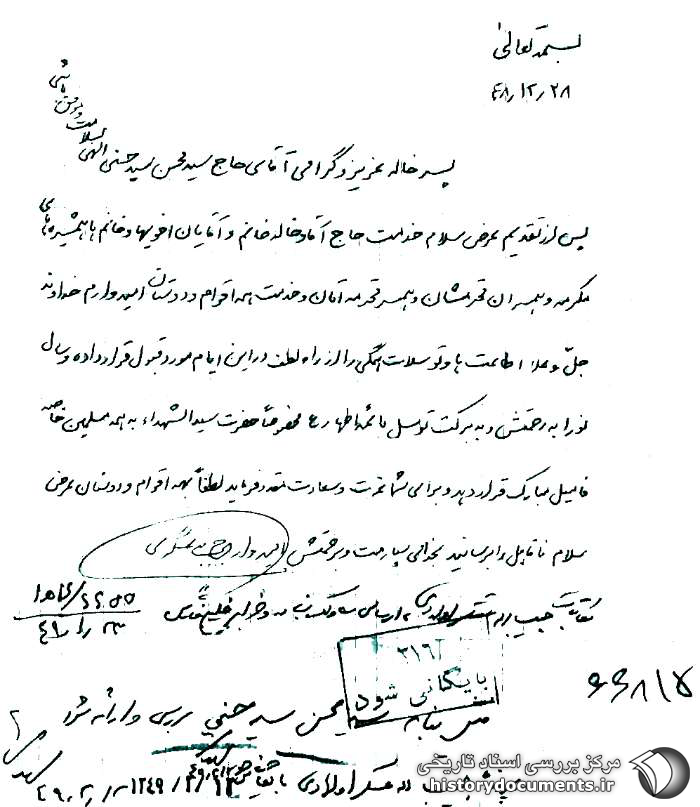 بسمه تعالی
۴۸/۱۲/۲۸
پسر خاله عزیز و گرامی آقای حاج سید محسن سید حسنی الهی سلامت و موفق باشی
پس از تقدیم عرض سلام خدمت حاج آقا و خاله خانم و آقایان اخویها و خانم ها همشیره های
مکرمه و همسران محترمشان و همسر محترمه آنان و خدمت همه اقوام و دوستان امیدوارم خداوند
جلّ و علا اطاعت ها و توسلات همگی را از راه لطف در این ایام مورد قبول قرار داده و سال
نو را به رحمتش و به برکت توسل بائمه اطهار ع مخصوصاً حضرت سیدالشهداء به همه مسلمین خاصه
فامیل مبارک قرار دهد و برای شما عزت و سعادت مقدر فرماید لطفاً بهمه اقوام و دوستان عرض
سلام ناقابل را برسانید بخدای سپارمت و برحمتش امیدوار حبیب اله عسگری
۳۱۶
بایگانی شود
محسن سید حسنی بررسی و ارائه شود
۶۶۸۱۷
مرکز بررسی اسناد تاریخی
historydocuments.ir